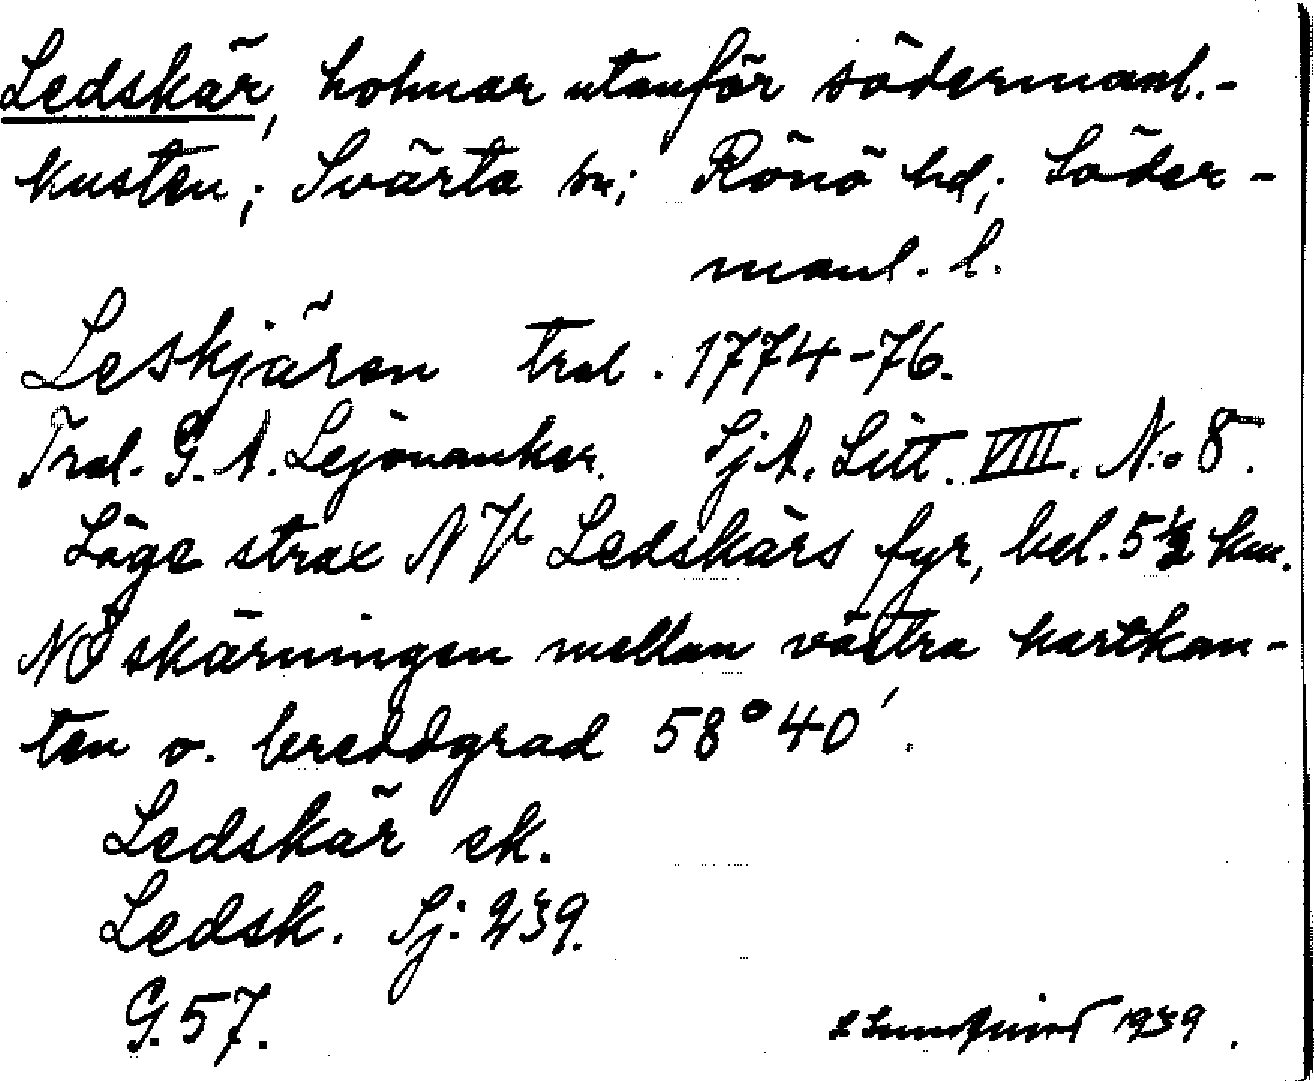 Ledskär, holmar utanför södermanl.-
kusten; Svärta sn; Rönö hd; Söder-
manl. l.
Leskjären tral. 1774-76.
Tral. G. A. Lejonankar. Sj A. Litt. VIII. N:o 8.
Läge strax NV Ledskärs fyr, bel. 5 1/2 km.
NÖ skärningen mellan västra kartkan-
ten o. breddgrad 58° 40´.
Ledskär ek.
Ledsk. Sj: 239.
G. 57.
Lundqvist 1939.